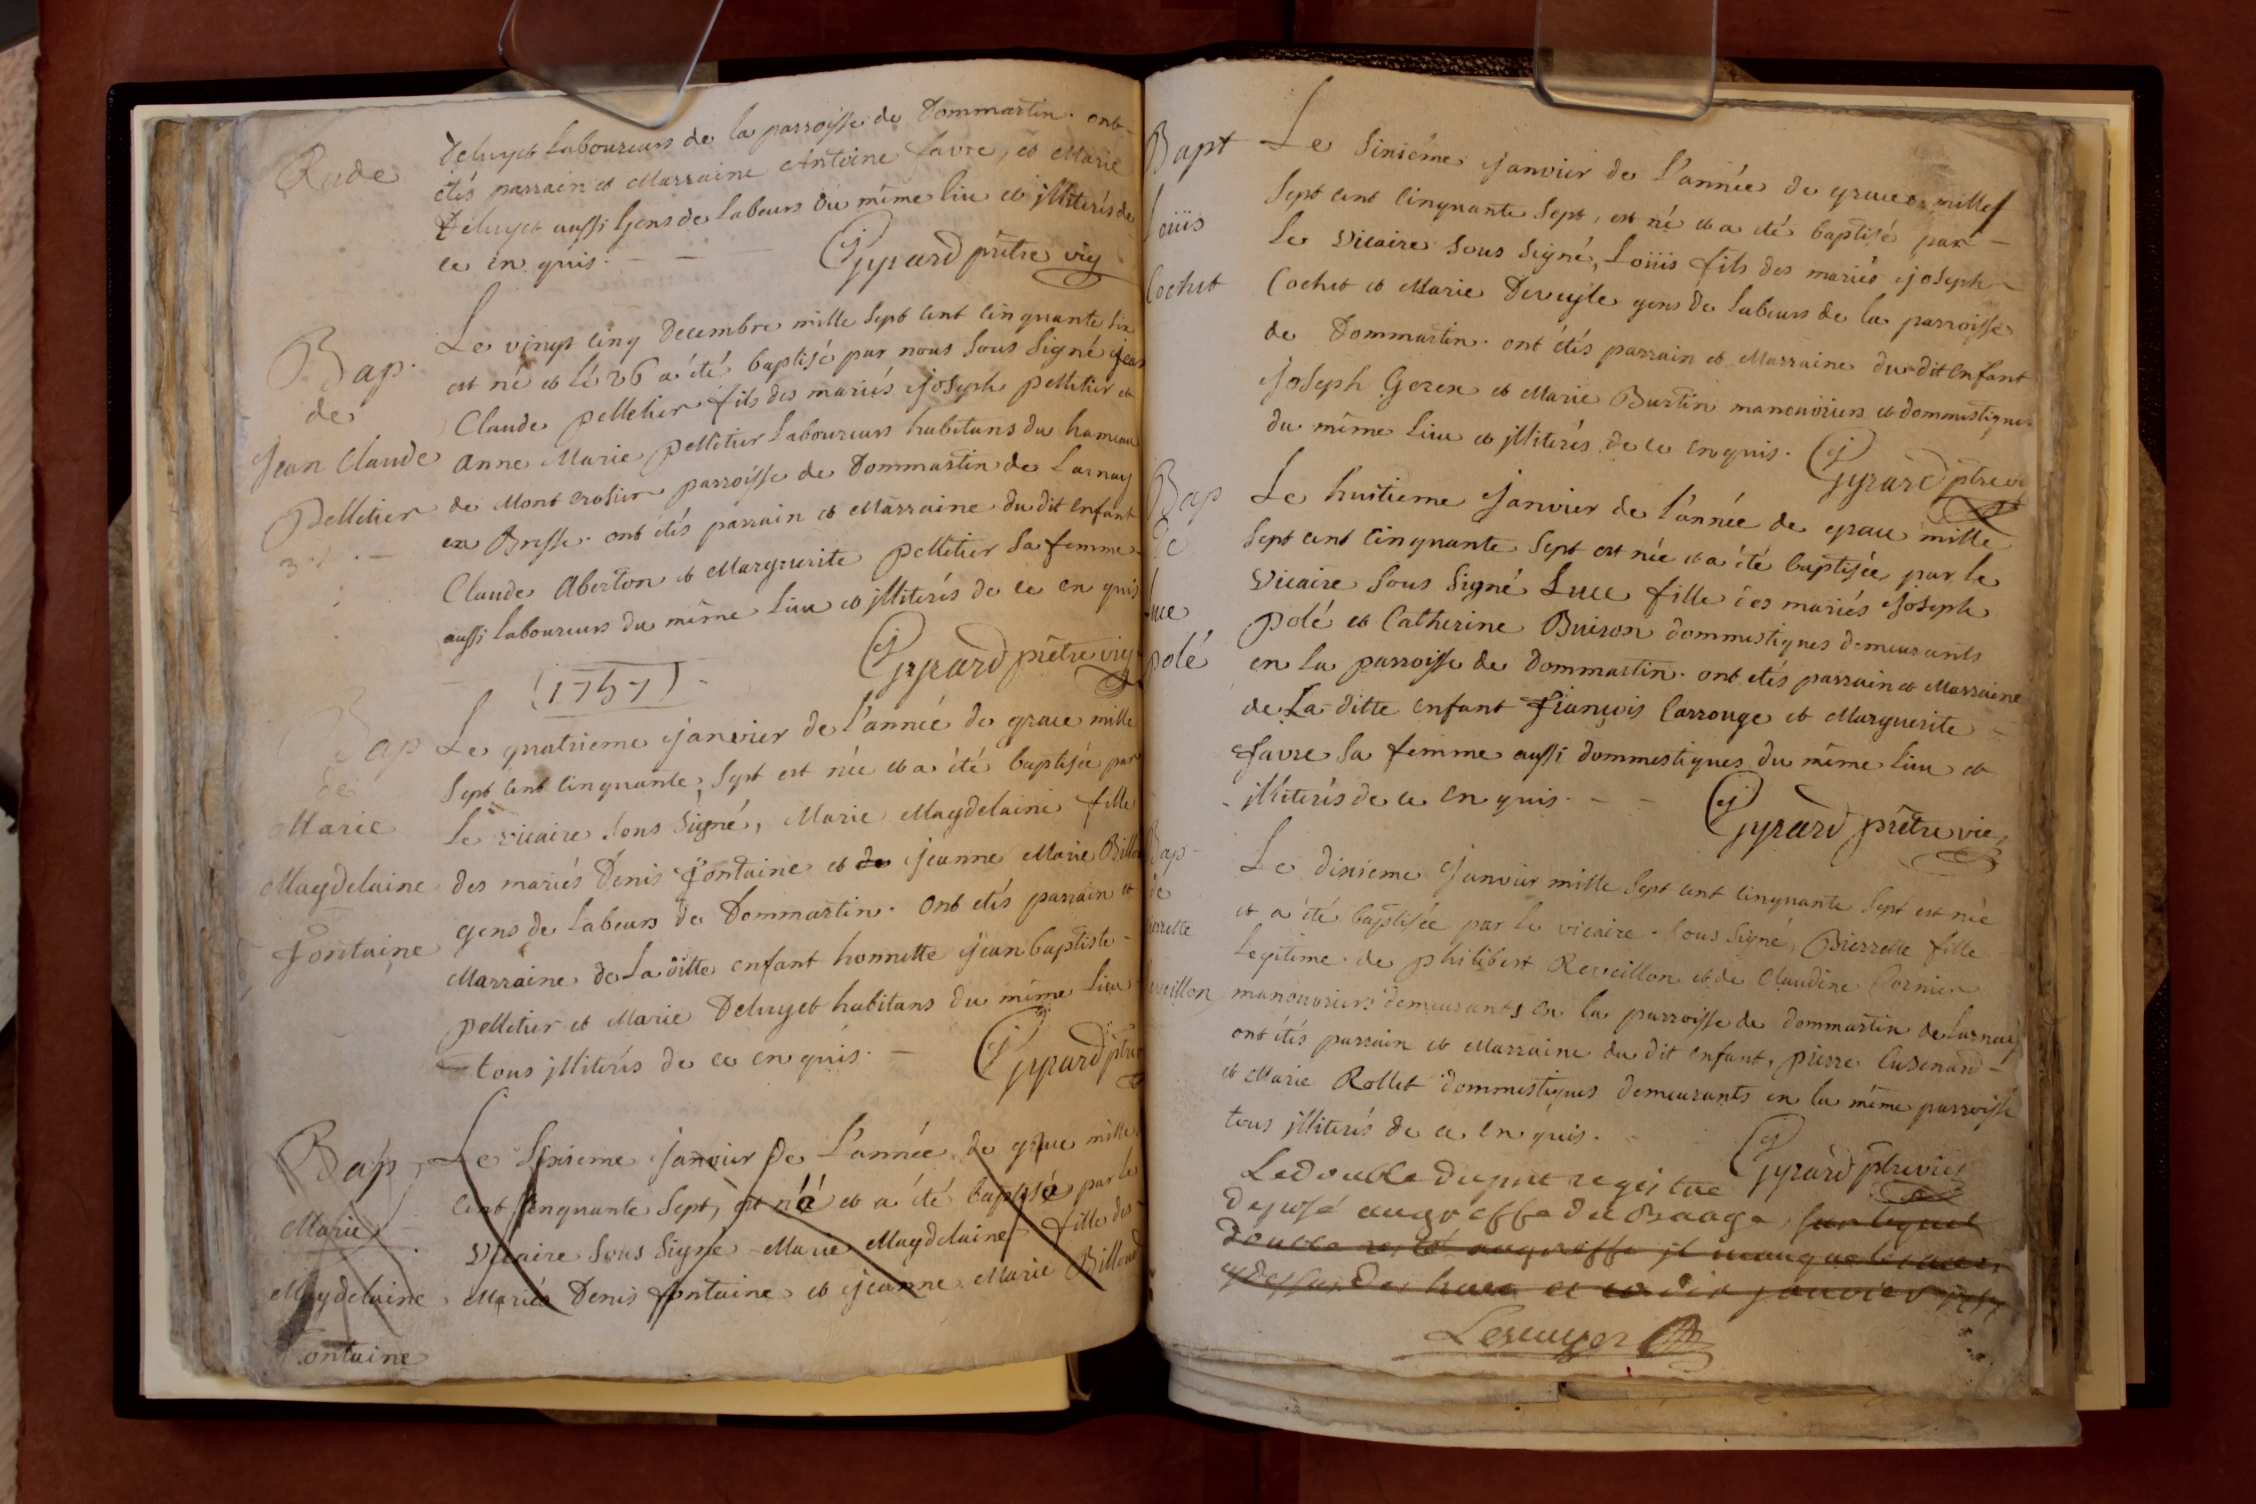 Rude
Deluyet Laboureurs de la parroisse de Dommartin. ont
etés parrain et Marraine Antoine favre, et Marie
Deluyet aussi Gens de Labeurs du même lieu et jlliterés de
ce en quis.
Gyrard prêtre vic
Bap.
de
jean Claude
Pelletier
Le vingt cinq Decembre mille sept cent cinquante six
est né et le 26 a été baptisé par nous sous signé jean
Claude pelletier fils des mariés joseph pelletier et
anne Marie pelletier Laboureurs habitans du hameau
de Mont crosier parroisse de Dommartin de Larnay
en Bresse. ont étés parrain et Marraine du dit enfant
Claude Aberton et Marguerite pelletier sa femme
aussi laboureurs du même lieu et jlliterés de ce en quis
Gyrard prêtre vic
(1757)
Bap
de
Marie
Magdelaine
fontaine
Le quatrieme janvier de l'année de grace mille
sept cent cinquante sept est née et a été baptisée par
le vicaire sous signé, Marie Magdelaine fille
des mariés Denis fontaine et de jeanne Marie Billou
gens de Labeurs de Dommartin. ont etés parrain et
Marraine de La ditte enfant honnette jean baptiste
pelletier et Marie Deluyet habitans du même lieu
tous jlliterés de ce en quis.
Gyrard ptre
Bap
Marie
Magdelaine
fontaine
Le sixieme janvier de l'année de grace mille
cent cinquante sept, est née et a été baptisée par le
vicaire sous signé Marie Magdelaine fille des
Mariés Denis fontaine et jeanne Marie Billoud
Bapt
Loüis
Cochet
Le sixiéme janvier de l'année de grace mille
sept cent cinquante sept, est né et a été baptisé par
le vicaire sous signé, Loüis fils des mariés joseph
Cochet et Marie Deveyle gens de labeurs de la parroisse
de Dommartin. ont étés parrain et Marraine du dit enfant
joseph Gerex et Marie Burtin manouvriers et dommestiques
du même lieu et jlliterés de ce en quis.
Gyrard ptre vi
Bap
de
Luce
polé
Le huitieme janvier de l'année de grace mille
sept cent cinquante sept est née et a été baptisée par le
vicaire sous signé Luce fille des mariés joseph
polé et Catherine Buiron dommestiques demeurants
en la parroisse de Dommartin. ont etés parrain et Marraine
de La ditte enfant françois Carrouge et Marguerite
favre sa femme aussi dommestiques du même lieu et
jlliterés de ce en quis.
Gyrard prêtre vic
Bap
de
ierrette
eveillon
Le dixieme janvier mille sept cent cinquante sept est née
et a été baptisée par le vicaire sous signé, Pierrette fille
legitime de philibert Reveillon et de Claudine Cornier
manouvriers demeurants en la parroisse de dommartin de Larnay
ont étés parrain et Marraine du dit enfant, pierre Cusenard
et Marie Rollet dommestiques demeurants en la même parroisse
tous jlliterés de ce en quis.
Gyrard ptre vic
Le double du pnt registre
deposé au greffe de Baage, sur lequel
double resté au greffe il manque les actes
cy dessus des huit et dix janvier 1757
Lescuyer